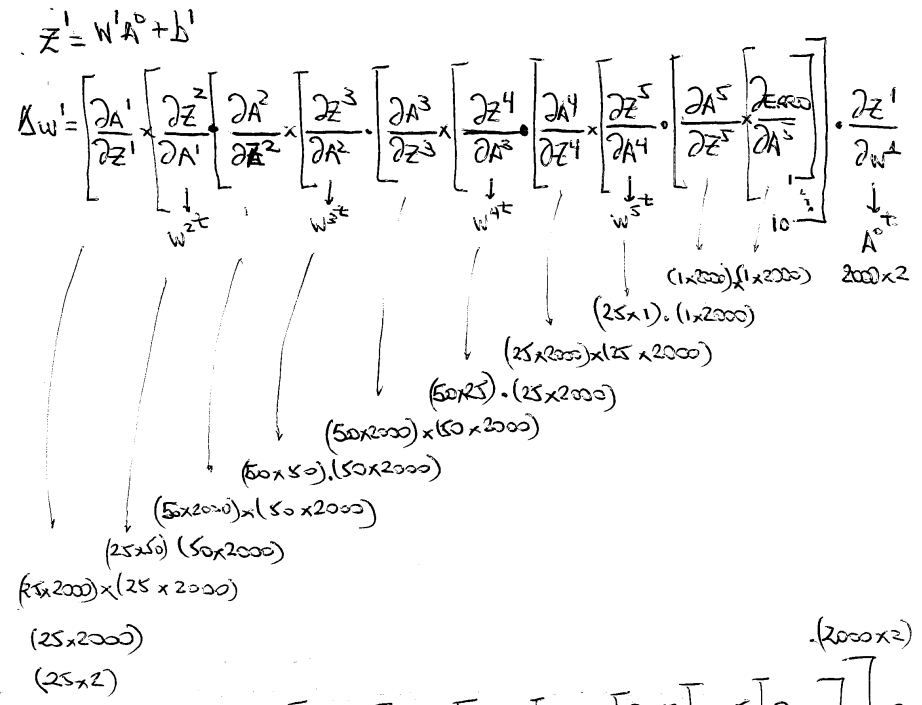 Z¹ = W¹A⁰ + b¹
Δw¹ = [∂A¹/∂Z¹ × [∂Z²/∂A¹ • [∂A²/∂Z² × [∂Z³/∂A² • [∂A³/∂Z³ × [∂Z⁴/∂A³ • [∂A⁴/∂Z⁴ × [∂Z⁵/∂A⁴ • [∂A⁵/∂Z⁵ × [∂ERRO/∂A⁵]]] • ∂Z¹/∂w¹
↓ ↓ ↓ ↓ ↓
w²ᵗ w³ᵗ w⁴ᵗ w⁵ᵗ 10 A⁰ᵗ
(1x2000)x(1x2000) 2000x2
(25x1).(1x2000)
(25x2000)x(25x2000)
(50x25).(25x2000)
(50x2000)x(50x2000)
(50x50).(50x2000)
(50x2000)x(50x2000)
(25x50)(50x2000)
(25x2000)x(25x2000)
(25x2000) .(2000x2)
(25x2)